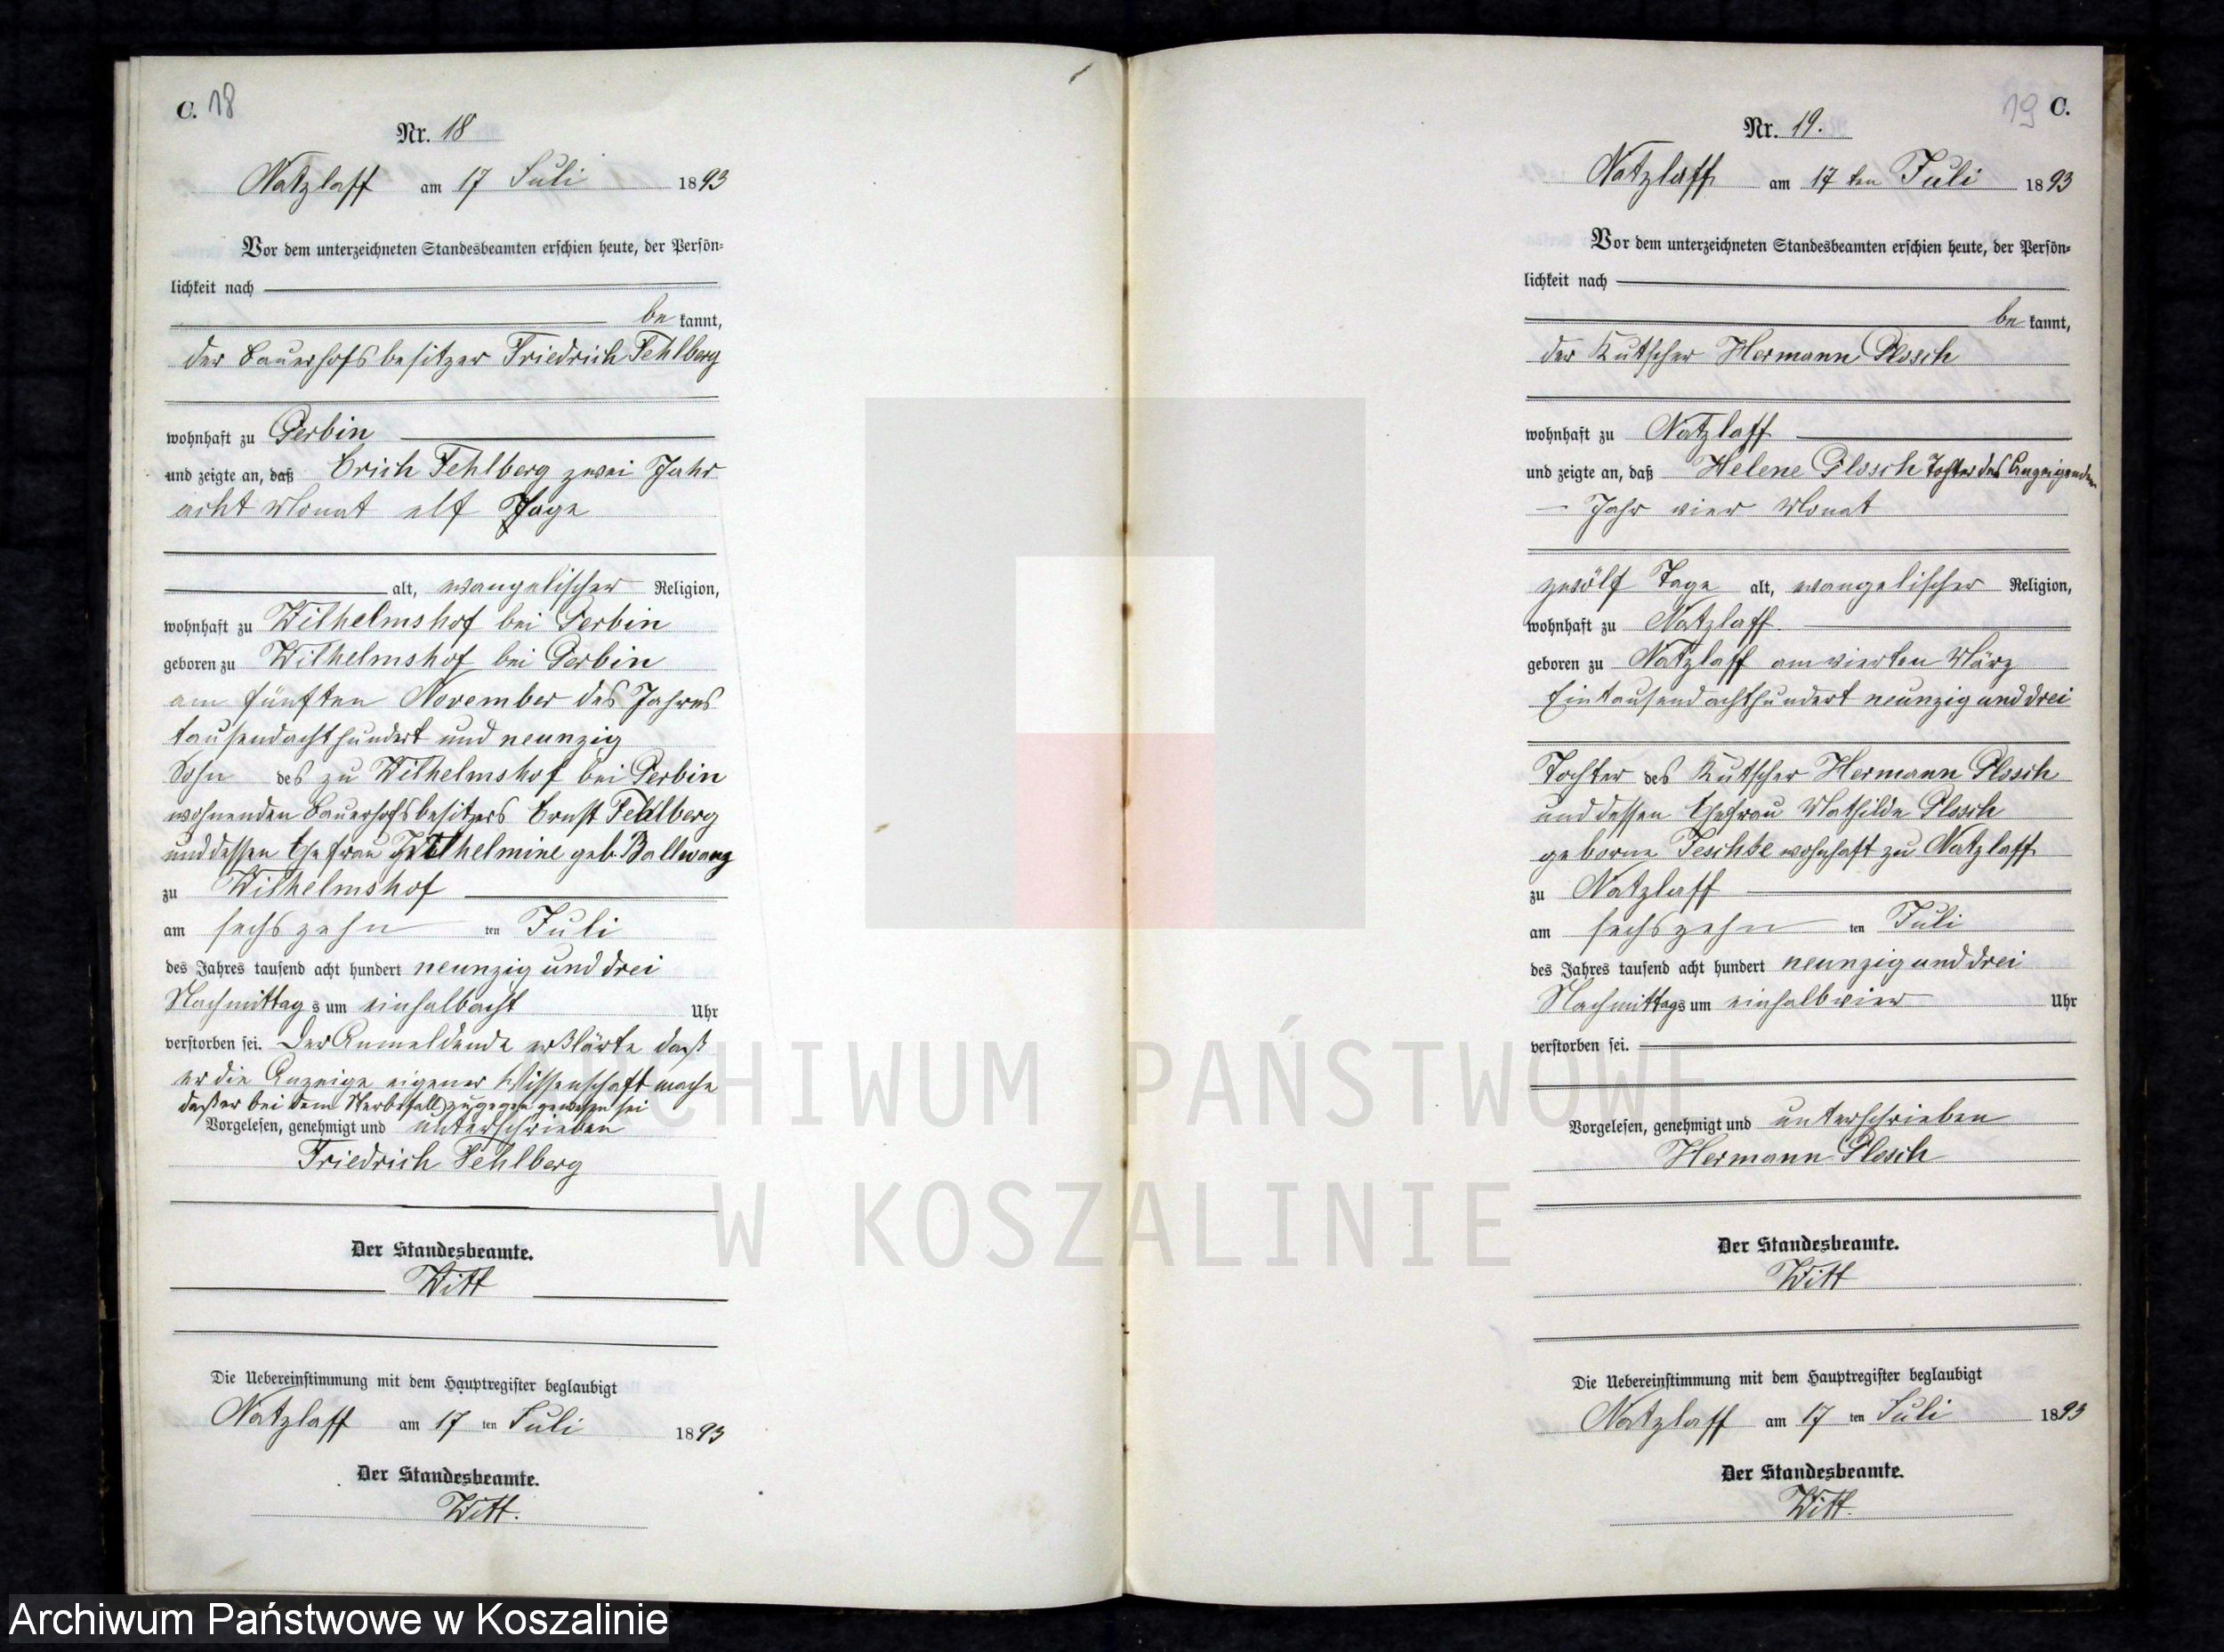 C. 18
Nr. 18
Natzlaff am 17 Juli 1893
Vor dem unterzeichneten Standesbeamten erschien heute, der Persön-
lichkeit nach
be kannt,
der Bauerhofsbesitzer Friedrich Fehlberg
wohnhaft zu Gerbin
und zeigte an, daß Erich Fehlberg zwei Jahr
acht Monat elf Tage
alt, evangelischer Religion,
wohnhaft zu Wilhelmshof bei Gerbin
geboren zu Wilhelmshof bei Gerbin
am fünften November des Jahres
tausendachthundert und neunzig
Sohn des zu Wilhelmshof bei Gerbin
wohnenden Bauerhofsbesitzers Ernst Fehlberg
und dessen Ehefrau Wilhelmine geb. Ballwanz
zu Wilhelmshof
am sechszehn ten Juli
des Jahres tausend acht hundert neunzig und drei
Nachmittag s um einhalbacht Uhr
verstorben sei. Der Anmeldende erklärte daß
er die Anzeige eigener Wissenschaft mache
daß er bei dem Sterbefall zugegen gewesen sei
Vorgelesen, genehmigt und unterschrieben
Friedrich Fehlberg
Der Standesbeamte.
Witt
Die Uebereinstimmung mit dem Hauptregister beglaubigt
Natzlaff am 17 ten Juli 1893
Der Standesbeamte.
Witt.
19 C.
Nr. 19.
Natzlaff am 17 ten Juli 1893
Vor dem unterzeichneten Standesbeamten erschien heute, der Persön-
lichkeit nach
be kannt,
der Kutscher Hermann Plosch
wohnhaft zu Natzlaff
und zeigte an, daß Helene Plosch Tochter des Anzeigenden
— Jahr vier Monat
zwölf Tage alt, evangelischer Religion,
wohnhaft zu Natzlaff.
geboren zu Natzlaff am vierten März
Eintausendachthundert neunzig und drei
Tochter des Kutscher Hermann Plosch
und dessen Ehefrau Mathilde Plosch
geborne Jeschke wohnhaft zu Natzlaff
zu Natzlaff
am sechszehn ten Juli
des Jahres tausend acht hundert neunzig und drei
Nachmittags um einhalbvier Uhr
verstorben sei.
Vorgelesen, genehmigt und unterschrieben
Hermann Plosch
Der Standesbeamte.
Witt
Die Uebereinstimmung mit dem Hauptregister beglaubigt
Natzlaff am 17 ten Juli 1893
Der Standesbeamte.
Witt.
ARCHIWUM PAŃSTWOWE
W KOSZALINIE
Archiwum Państwowe w Koszalinie